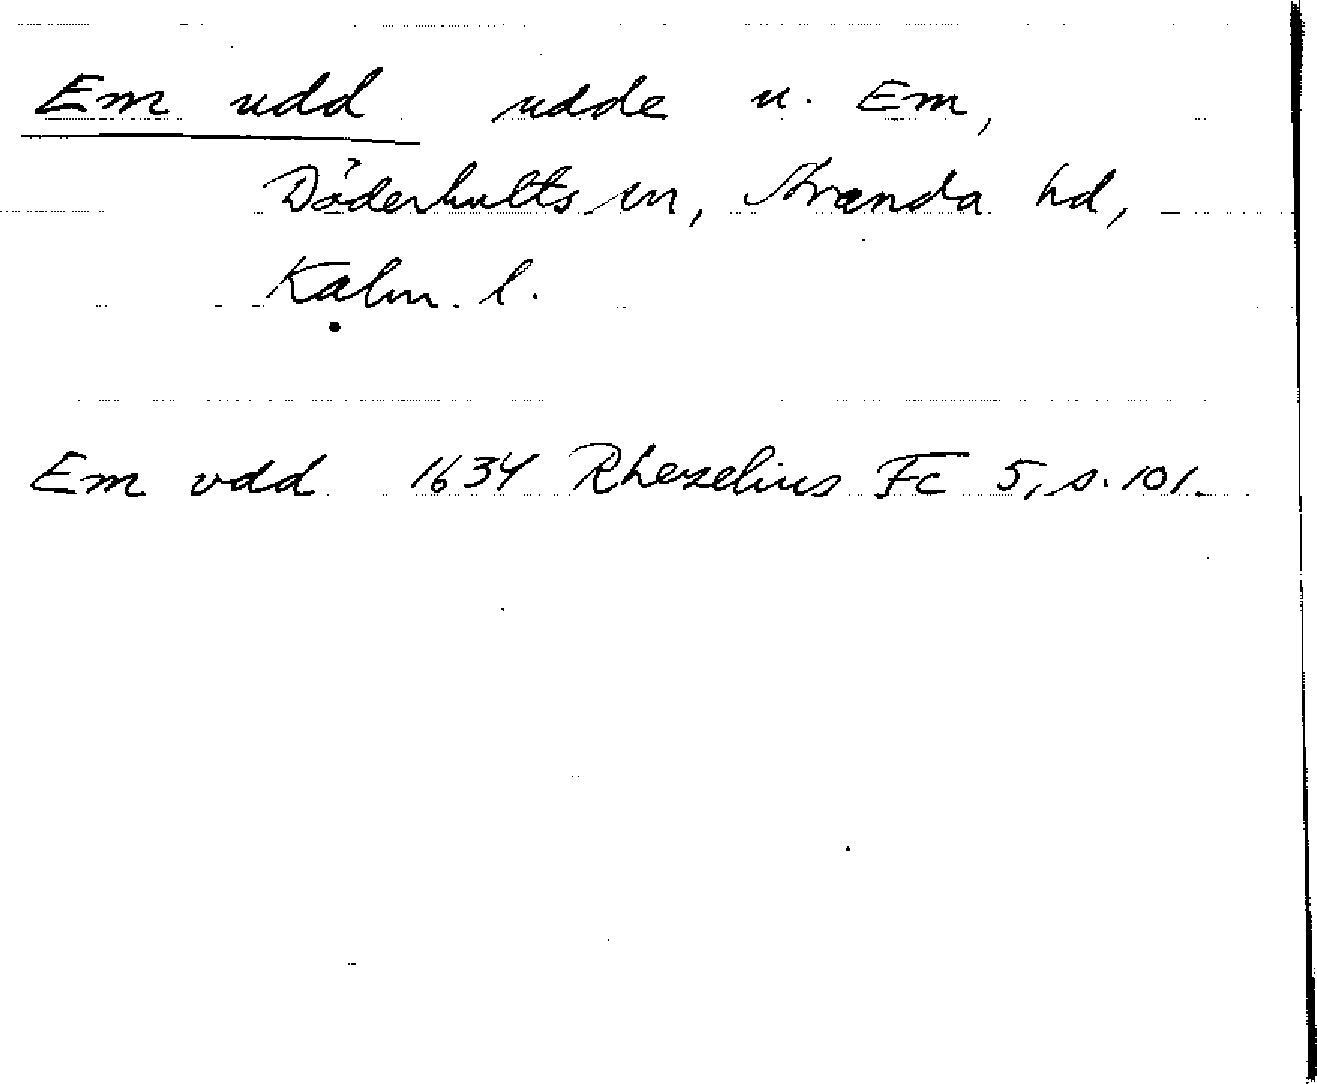 Em udd udde u. Em,
Döderhults sn, Stranda hd,
Kalm. l.
Em vdd 1634 Rhezelius Fc 5, s. 101.